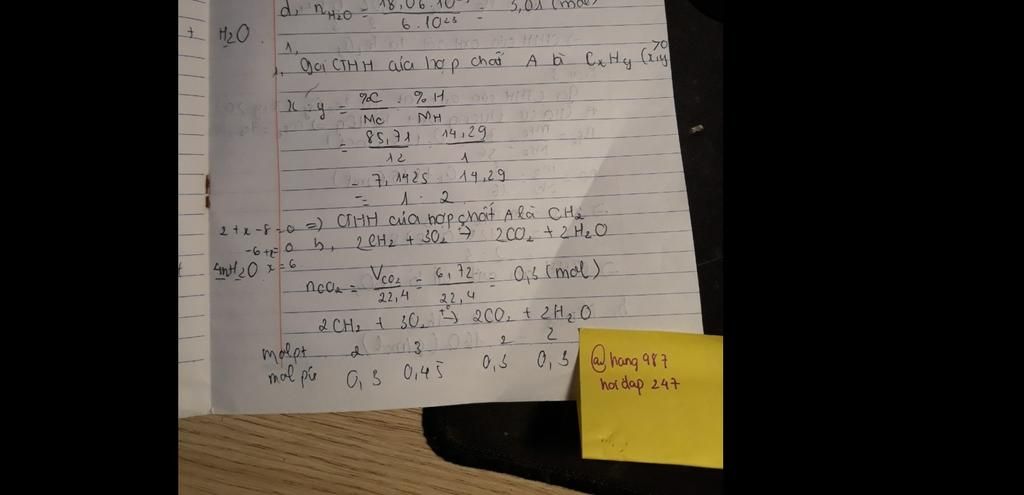 d, nH₂O = 18,06.10²³ / 6.10²³ = 3,01 (mol)
+ H₂O
1,
1, Gọi CTHH của hợp chất A là CxHy (x,y >0
x : y = %C / MC : %H / MH
= 85,71 / 12 : 14,29 / 1
= 7,1425 : 14,29
= 1 : 2
=) CTHH của hợp chất A là CH₂
2+x-8=0
b, 2CH₂ + 3O₂ t°→ 2CO₂ + 2H₂O
-6+x=0
4mH₂O x=6
nCO₂ = VCO₂ / 22,4 = 6,72 / 22,4 = 0,3 (mol)
2CH₂ + 3O₂ t°→ 2CO₂ + 2H₂O
molpt 2 3 2 2
mol pứ 0,3 0,45 0,3 0,3
@hang987
hoidap 247